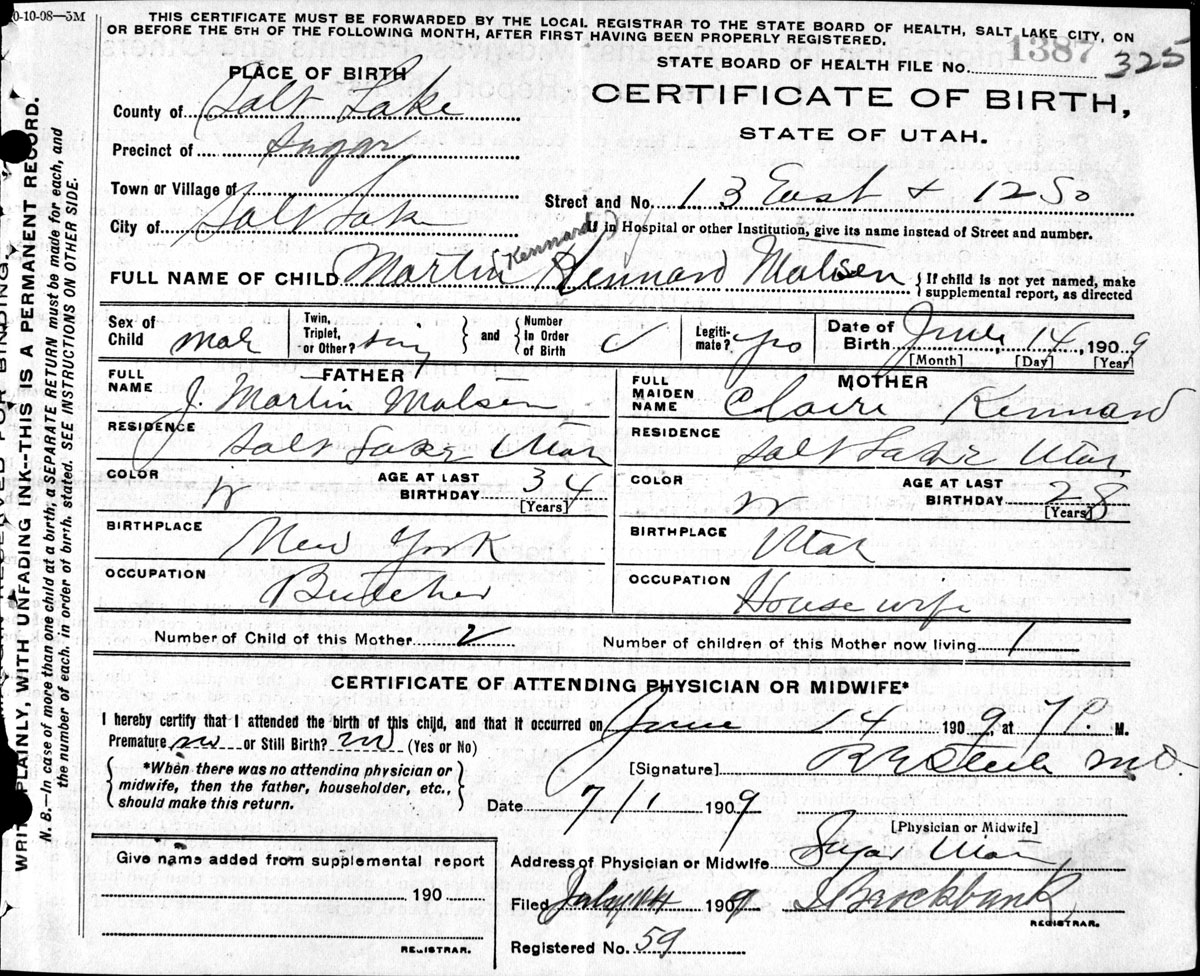 0-10-08—3M
THIS CERTIFICATE MUST BE FORWARDED BY THE LOCAL REGISTRAR TO THE STATE BOARD OF HEALTH, SALT LAKE CITY, ON
OR BEFORE THE 5TH OF THE FOLLOWING MONTH, AFTER FIRST HAVING BEEN PROPERLY REGISTERED.
STATE BOARD OF HEALTH FILE No. 1387 325
PLACE OF BIRTH
CERTIFICATE OF BIRTH,
STATE OF UTAH.
County of Salt Lake
Precinct of Sugar
Town or Village of
City of Salt Lake
Street and No. 13 East + 1250
If in Hospital or other Institution, give its name instead of Street and number.
Kennard
FULL NAME OF CHILD Martin Kennard Matsen
{If child is not yet named, make
supplemental report, as directed
Sex of Child mal
Twin, Triplet, or Other? sing
and
Number In Order of Birth
Legitimate? yes
Date of Birth June 14, 1909
[Month] [Day] [Year]
FATHER
FULL NAME J. Martin Matsen
RESIDENCE Salt Lake Utah
COLOR W
AGE AT LAST BIRTHDAY 34
[Years]
BIRTHPLACE New York
OCCUPATION Butcher
MOTHER
FULL MAIDEN NAME Claire Kennard
RESIDENCE Salt Lake Utah
COLOR W
AGE AT LAST BIRTHDAY 28
[Years]
BIRTHPLACE Utah
OCCUPATION House wife
Number of Child of this Mother 2
Number of children of this Mother now living 1
CERTIFICATE OF ATTENDING PHYSICIAN OR MIDWIFE*
I hereby certify that I attended the birth of this child, and that it occurred on June 14 1909, at P. M.
Premature no or Still Birth? no (Yes or No)
*When there was no attending physician or
midwife, then the father, householder, etc.,
should make this return.
[Signature] M.D.
Date 7/1 1909
[Physician or Midwife]
Give name added from supplemental report
190
REGISTRAR.
Address of Physician or Midwife Sugar Utah
Filed July 14 1909 Brockbank
REGISTRAR.
Registered No. 59
WRITE PLAINLY, WITH UNFADING INK--THIS IS A PERMANENT RECORD.
N. B.—In case of more than one child at a birth, a SEPARATE RETURN must be made for each, and
the number of each, in order of birth, stated. SEE INSTRUCTIONS ON OTHER SIDE.